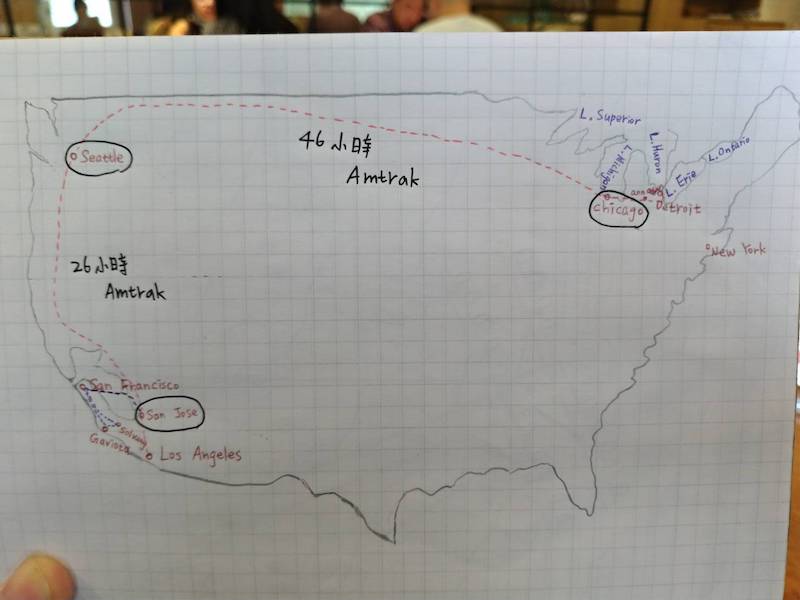 L. Superior
46小時
Amtrak
L. Huron
L. Ontario
L. Michigan
L. Erie
Seattle
chicago
Detroit
New York
26小時
Amtrak
San Francisco
San Jose
Solvang
Gaviota
Los Angeles